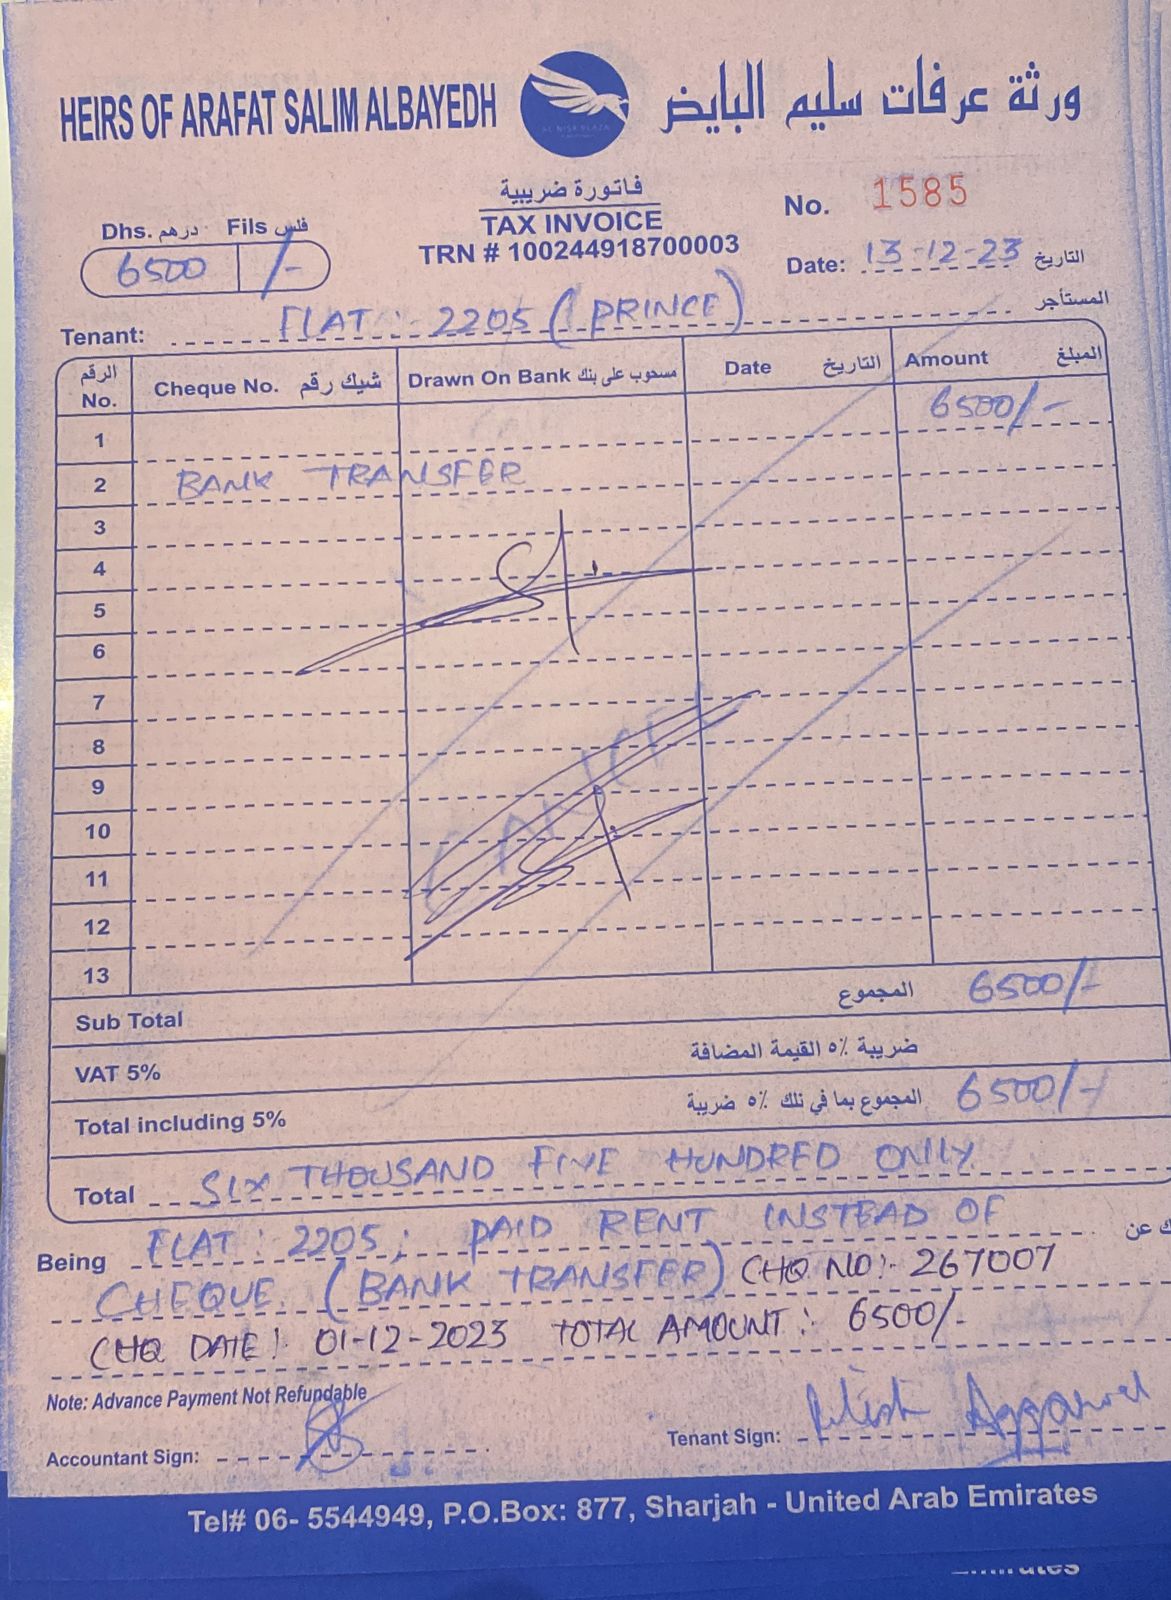 HEIRS OF ARAFAT SALIM ALBAYEDH
ورثة عرفات سليم البايض
AL NISR PLAZA
فاتورة ضريبية
TAX INVOICE
TRN # 100244918700003
No. 1585
Dhs. درهم Fils فلس
6500 /-
Date: 13-12-23 التاريخ
Tenant: FLAT :- 2205 (PRINCE) المستأجر
الرقم No. Cheque No. شيك رقم Drawn On Bank مسحوب على بنك Date التاريخ Amount المبلغ
1 6500/-
2 BANK TRANSFER
3
4
5
6
7
8
9
10
11
12
13
Sub Total المجموع 6500/-
VAT 5% ضريبة ٥٪ القيمة المضافة
Total including 5% المجموع بما في ذلك ٥٪ ضريبة 6500/-
Total SIX THOUSAND FIVE HUNDRED ONLY
Being FLAT : 2205 ; PAID RENT INSTEAD OF عن
CHEQUE (BANK TRANSFER) CHQ NO:- 267007
CHQ DATE :- 01-12-2023 TOTAL AMOUNT :- 6500/-
Note: Advance Payment Not Refundable
Accountant Sign:
Tenant Sign: Ritesh Aggarwal
Tel# 06- 5544949, P.O.Box: 877, Sharjah - United Arab Emirates